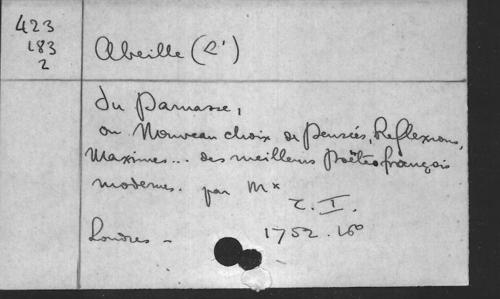 423
183
2
Abeille (L')
du Parnasse,
ou Nouveau choix de Pensées, Reflexions,
Maximes... des meilleurs Poëtes françois
modernes. par M*
T. I.
Londres - 1752. 16°